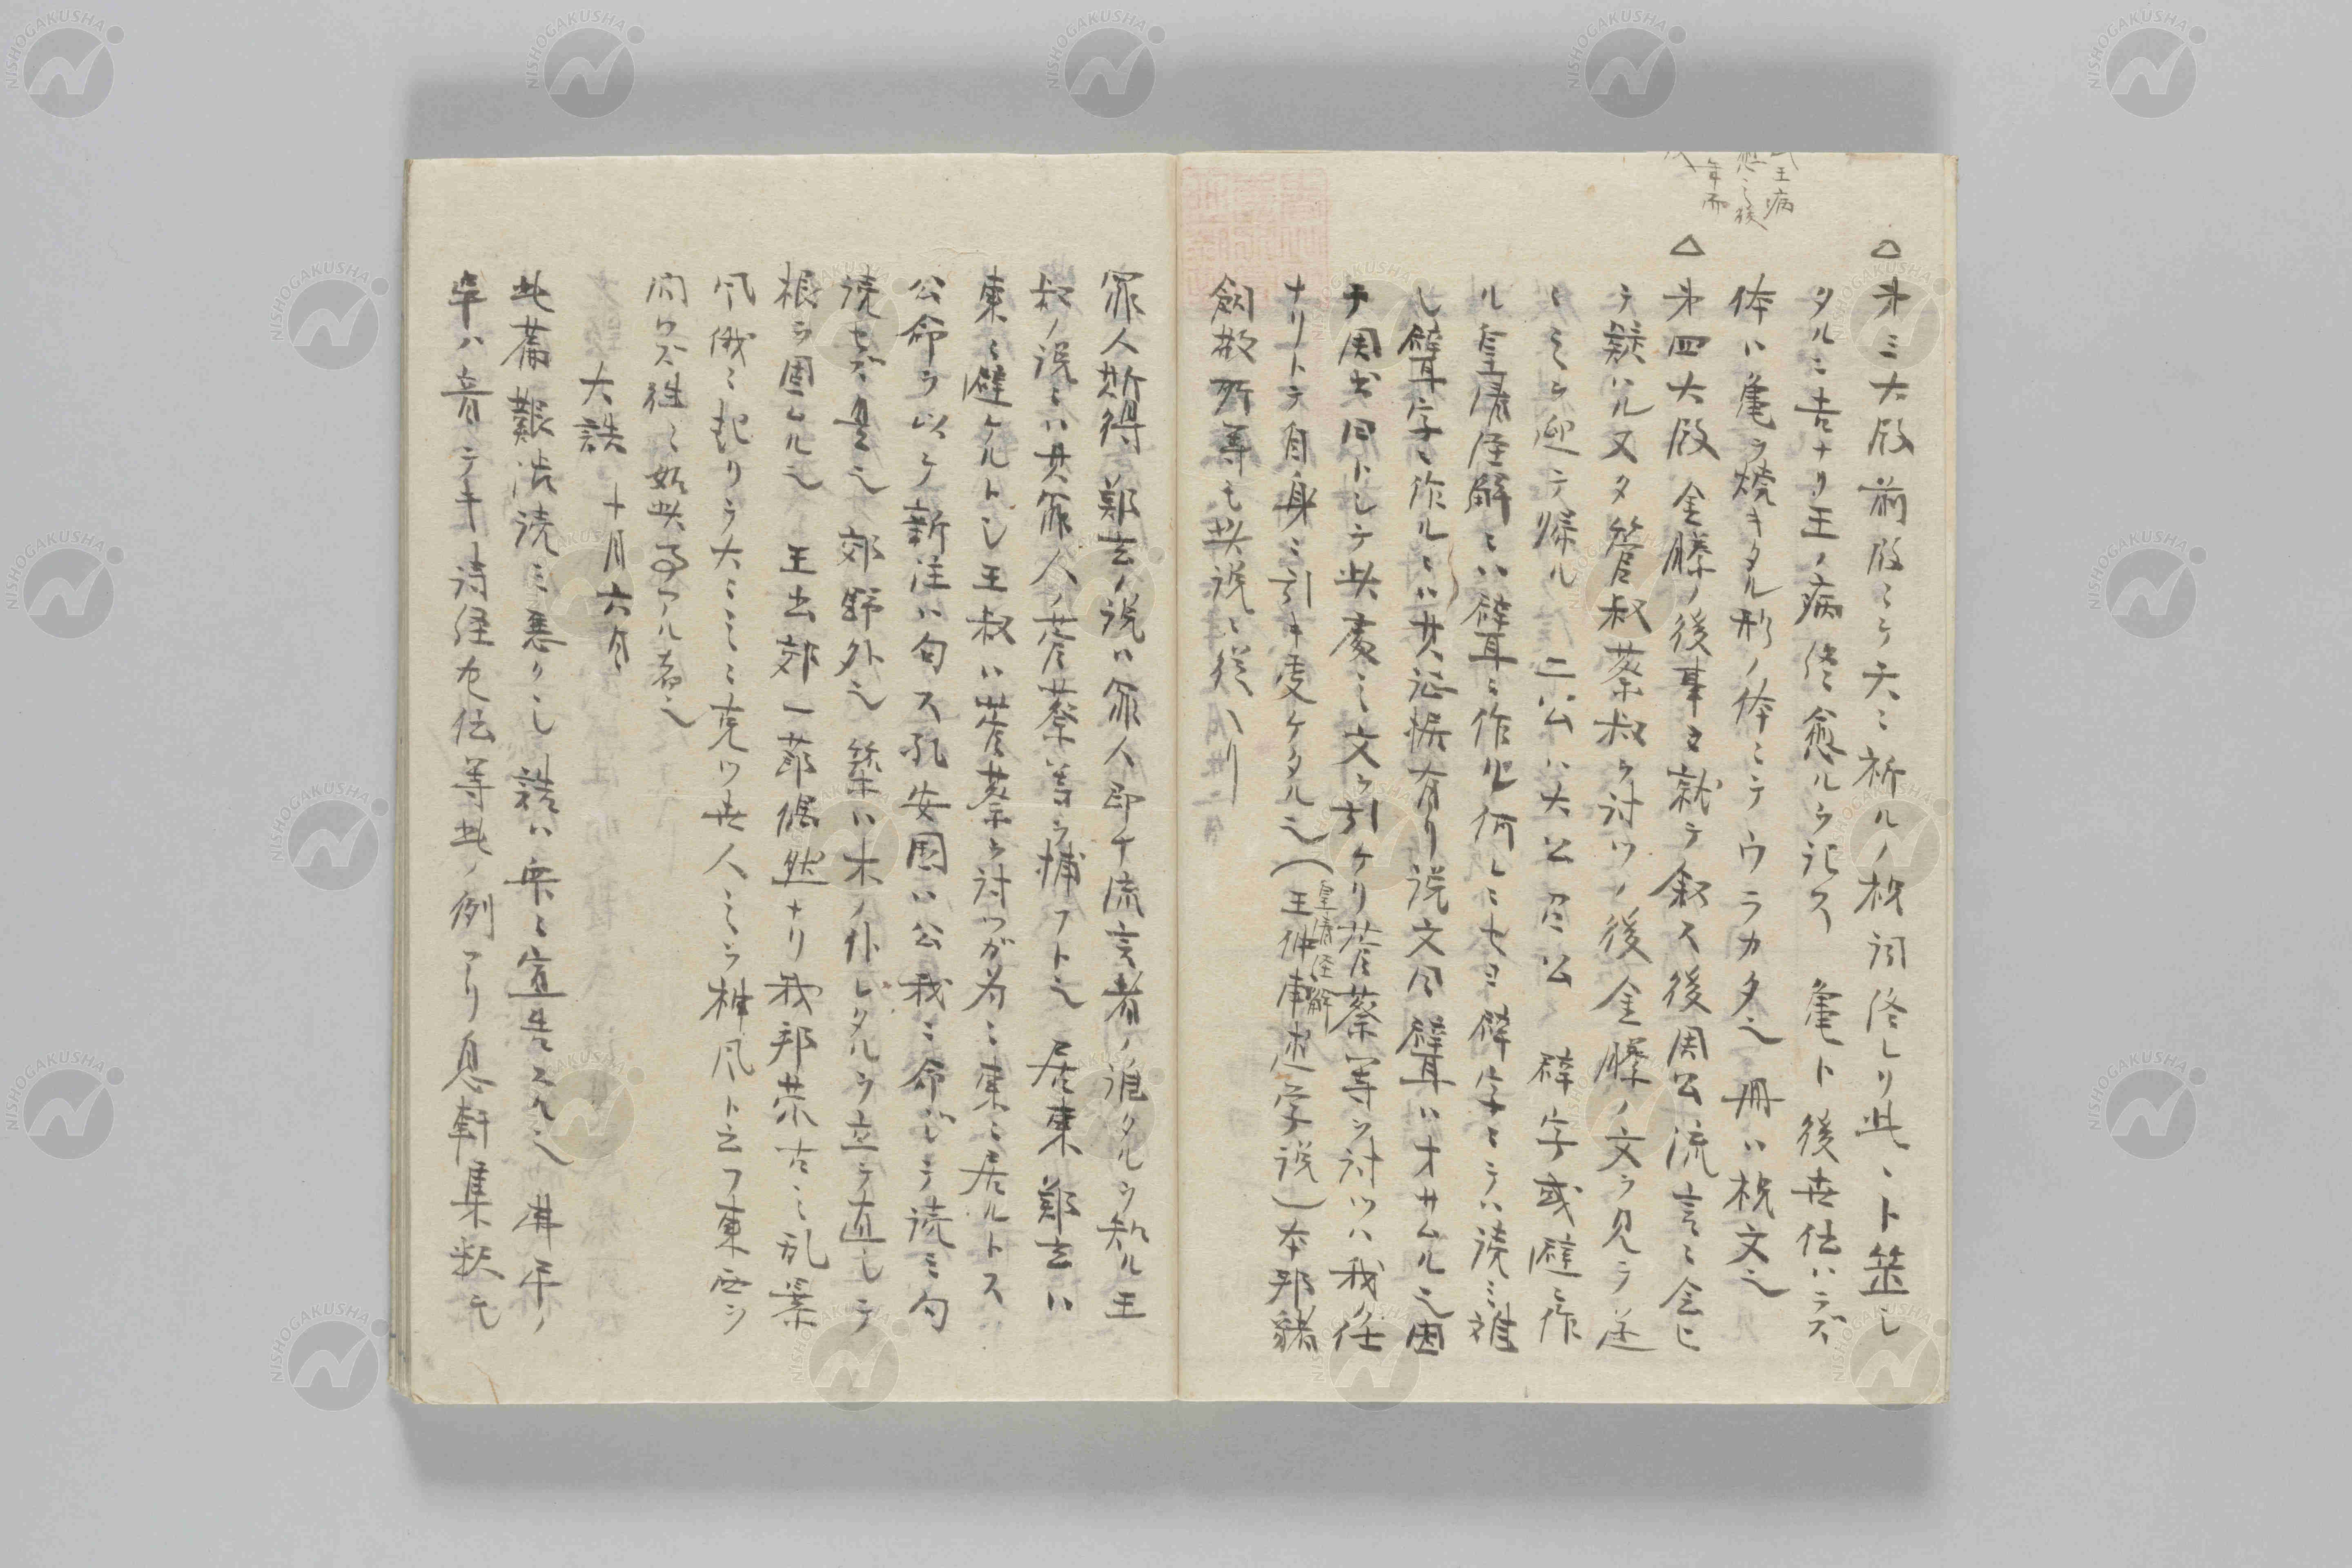 武王病
愈之後
年而
△第三大段前段ニケ天ニ祈ルノ祝詞終レリ此ニト筮シ
タルニ吉ナリ王ノ病終愈ルヲ記ス 亀卜後世伝ハラズ
体ハ亀ヲ焼キタル形ノ体ニテウラカタ之 冊ハ祝文之
△第四大段 金縢ノ後事ヲ就テ叙ス後周公流言ニ会ヒ
テ疑ハル又タ管叔蔡叔ヲ討ツノ後金縢ノ文ヲ見ラ
迎テ帰ル 二公ハ大公召公 辟字或避ニ作
ル皇清経解ニハ𨐨ニ作ル何レニセヨ辟字ニテハ読ミ難
シ𨐨字ニ作ルニハ其証拠有リ説文曰𨐨ハオサムル之因
テ周書曰トシテ此處ニ文ヲ引ケリ管蔡等ヲ討ツハ我任
ナリトテ自身ニ引キ受ケタル之(皇清経解王仲甫述学説)本邦猪
飼敬所等モ此説ニ従ヘリ
罪人斯得 鄭玄ノ説ハ罪人即チ流言者ノ誰タルヲ知ル王
叔ノ説ニハ其罪人ノ管蔡等ヲ捕フト之 居東 鄭玄ハ
東ニ避ケルトシ王叔ハ管蔡ヲ討ツガ為ニ東ニ居ルトス
公命ヲ以ケ新注ハ句ス孔安国ハ公我ニ命ジテ読ミ句
読セズ是之 郊野外之 築ハ木ノ仆レタルヲ立テ直シテ
根ヲ固ムル之 王出郊一節偶然ナリ我邦蒙古之乱
風俄ニ起リ 世人之ヲ神風ト云フ東西ヲ
問ハズ往々如此事アル者之
大誥 十月六日
此篇艱渋読ミ悪クシ 誥ハ衆ニ宣告スル之 弗弔ノ
弔ハ音テキ 詩経左伝等此ノ例アリ息軒集釈モ